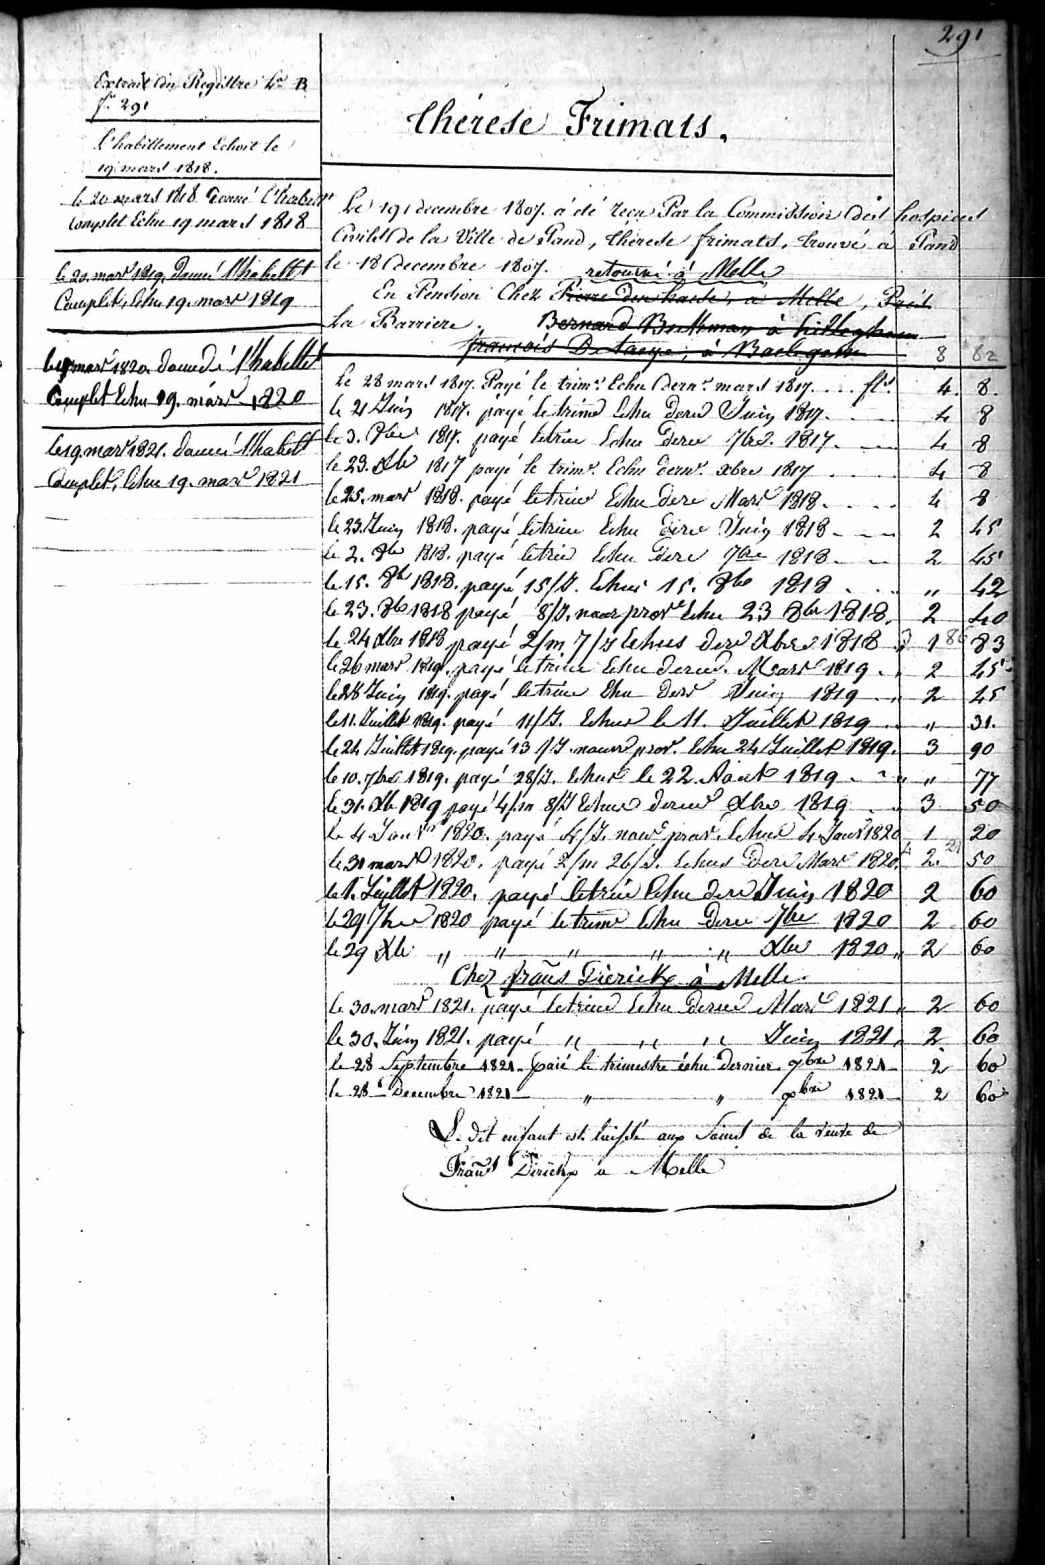 291
Extrait du Registre Lre B
f° 291
L'habillement Echoit le
19 mars 1818.
le 20 mars 1818 donné l'habillt
Complet Echu 19 mars 1818
le 20. mars 1819. Donné l'habillt
Complet, Echu 19. mars 1819
le 19 mars 1820. donné l'habillt
Complet Echu 19. mars 1820
le 19. mars 1821. donné l'habillt
Complet, Echu 19. mars 1821
thérèse Frimats.
Le 19 decembre 1807. a été reçu Par la Commission des hospices
Civils de la Ville de Gand, thérèse frimats, trouvé à Gand
le 18 decembre 1807. retourné à Melle
En Pension Chez Pierre à Melle, Près
La Barriere. Bernard à
francois à Baelegem 8 82
Le 28 mars 1817. Payé le trimre Echu dernr mars 1817. . . . fls. 4. 8.
le 21 Juin 1817. payé le trime Echu derer Juin 1817. 4 8
le 3. 8bre 1817. payé letrim Echu Derer 7bre. 1817. 4 8
le 23. Xbre 1817 payé le trimre. Echu dernr. xbre 1817 4 8
le 25. mars 1818. payé letrim Echu derer Mars 1818. 4 8
le 23. Juin 1818. payé letrim Echu derer Juin 1818 2 45
le 2. 8bre 1818. payé letrim Echu Derer 7bre 1818 2 45
le 15. 8bre 1818. payé 15/J. Echus 15. 8bre 1818 „ 42
le 23. 8bre 1818 payé 8/J. nouv prov. Echu 23 8bre 1818. 2 40
le 24 Xbre 1818 payé 2/m 7/J Echus derer Xbre 1818 1 83
le 26 mars 1819. payé letrim Echu derer. Mars 1819. 2 45
le 28 Juin 1819. payé letrim Echu derer Juin 1819 2 45
le 11. Juillet 1819. payé 11/J. Echus le 11. Juillet 1819 „ 31.
le 24 Juillet 1819. payé 13/J. nouv prov. Echu 24 Juillet 1819. 3 90
le 10. 7bre 1819. payé 28/J. Echus le 22. Août 1819 „ 77
le 31. Xbre 1819 payé 4/m 8/J Echus derer Xbre 1819 3 50
le 4 Janvr 1820. payé 4/J. nouv prov. Echus 4 Janvr 1820 1 20
le 30 mars 1820. payé 2/m 26/J. Echus Derer Mars 1820. 2 50
le 1. Juillet 1820. payé letrim Echu derer Juin 1820 2 60
le 29 7bre 1820 payé letrim Echu Derer 7bre 1820 2 60
le 29 Xbre „ „ „ „ „ Xbre 1820 „ 2 60
Chez frans Dierickx à Melle.
le 30. mars 1821. payé letrim Echu Derer Mars 1821 „ 2 60
le 30. Juin 1821. payé „ „ „ Juin 1821. 2 60
le 28 Septembre 1821. paié le trimestre échu Dernier 7bre 1821 2 60
le 28 Decembre 1821 „ „ Xbre 1821 2 60
Le dit enfant est laissé aux Soins de la veuve de
Frans Dirickx à Melle